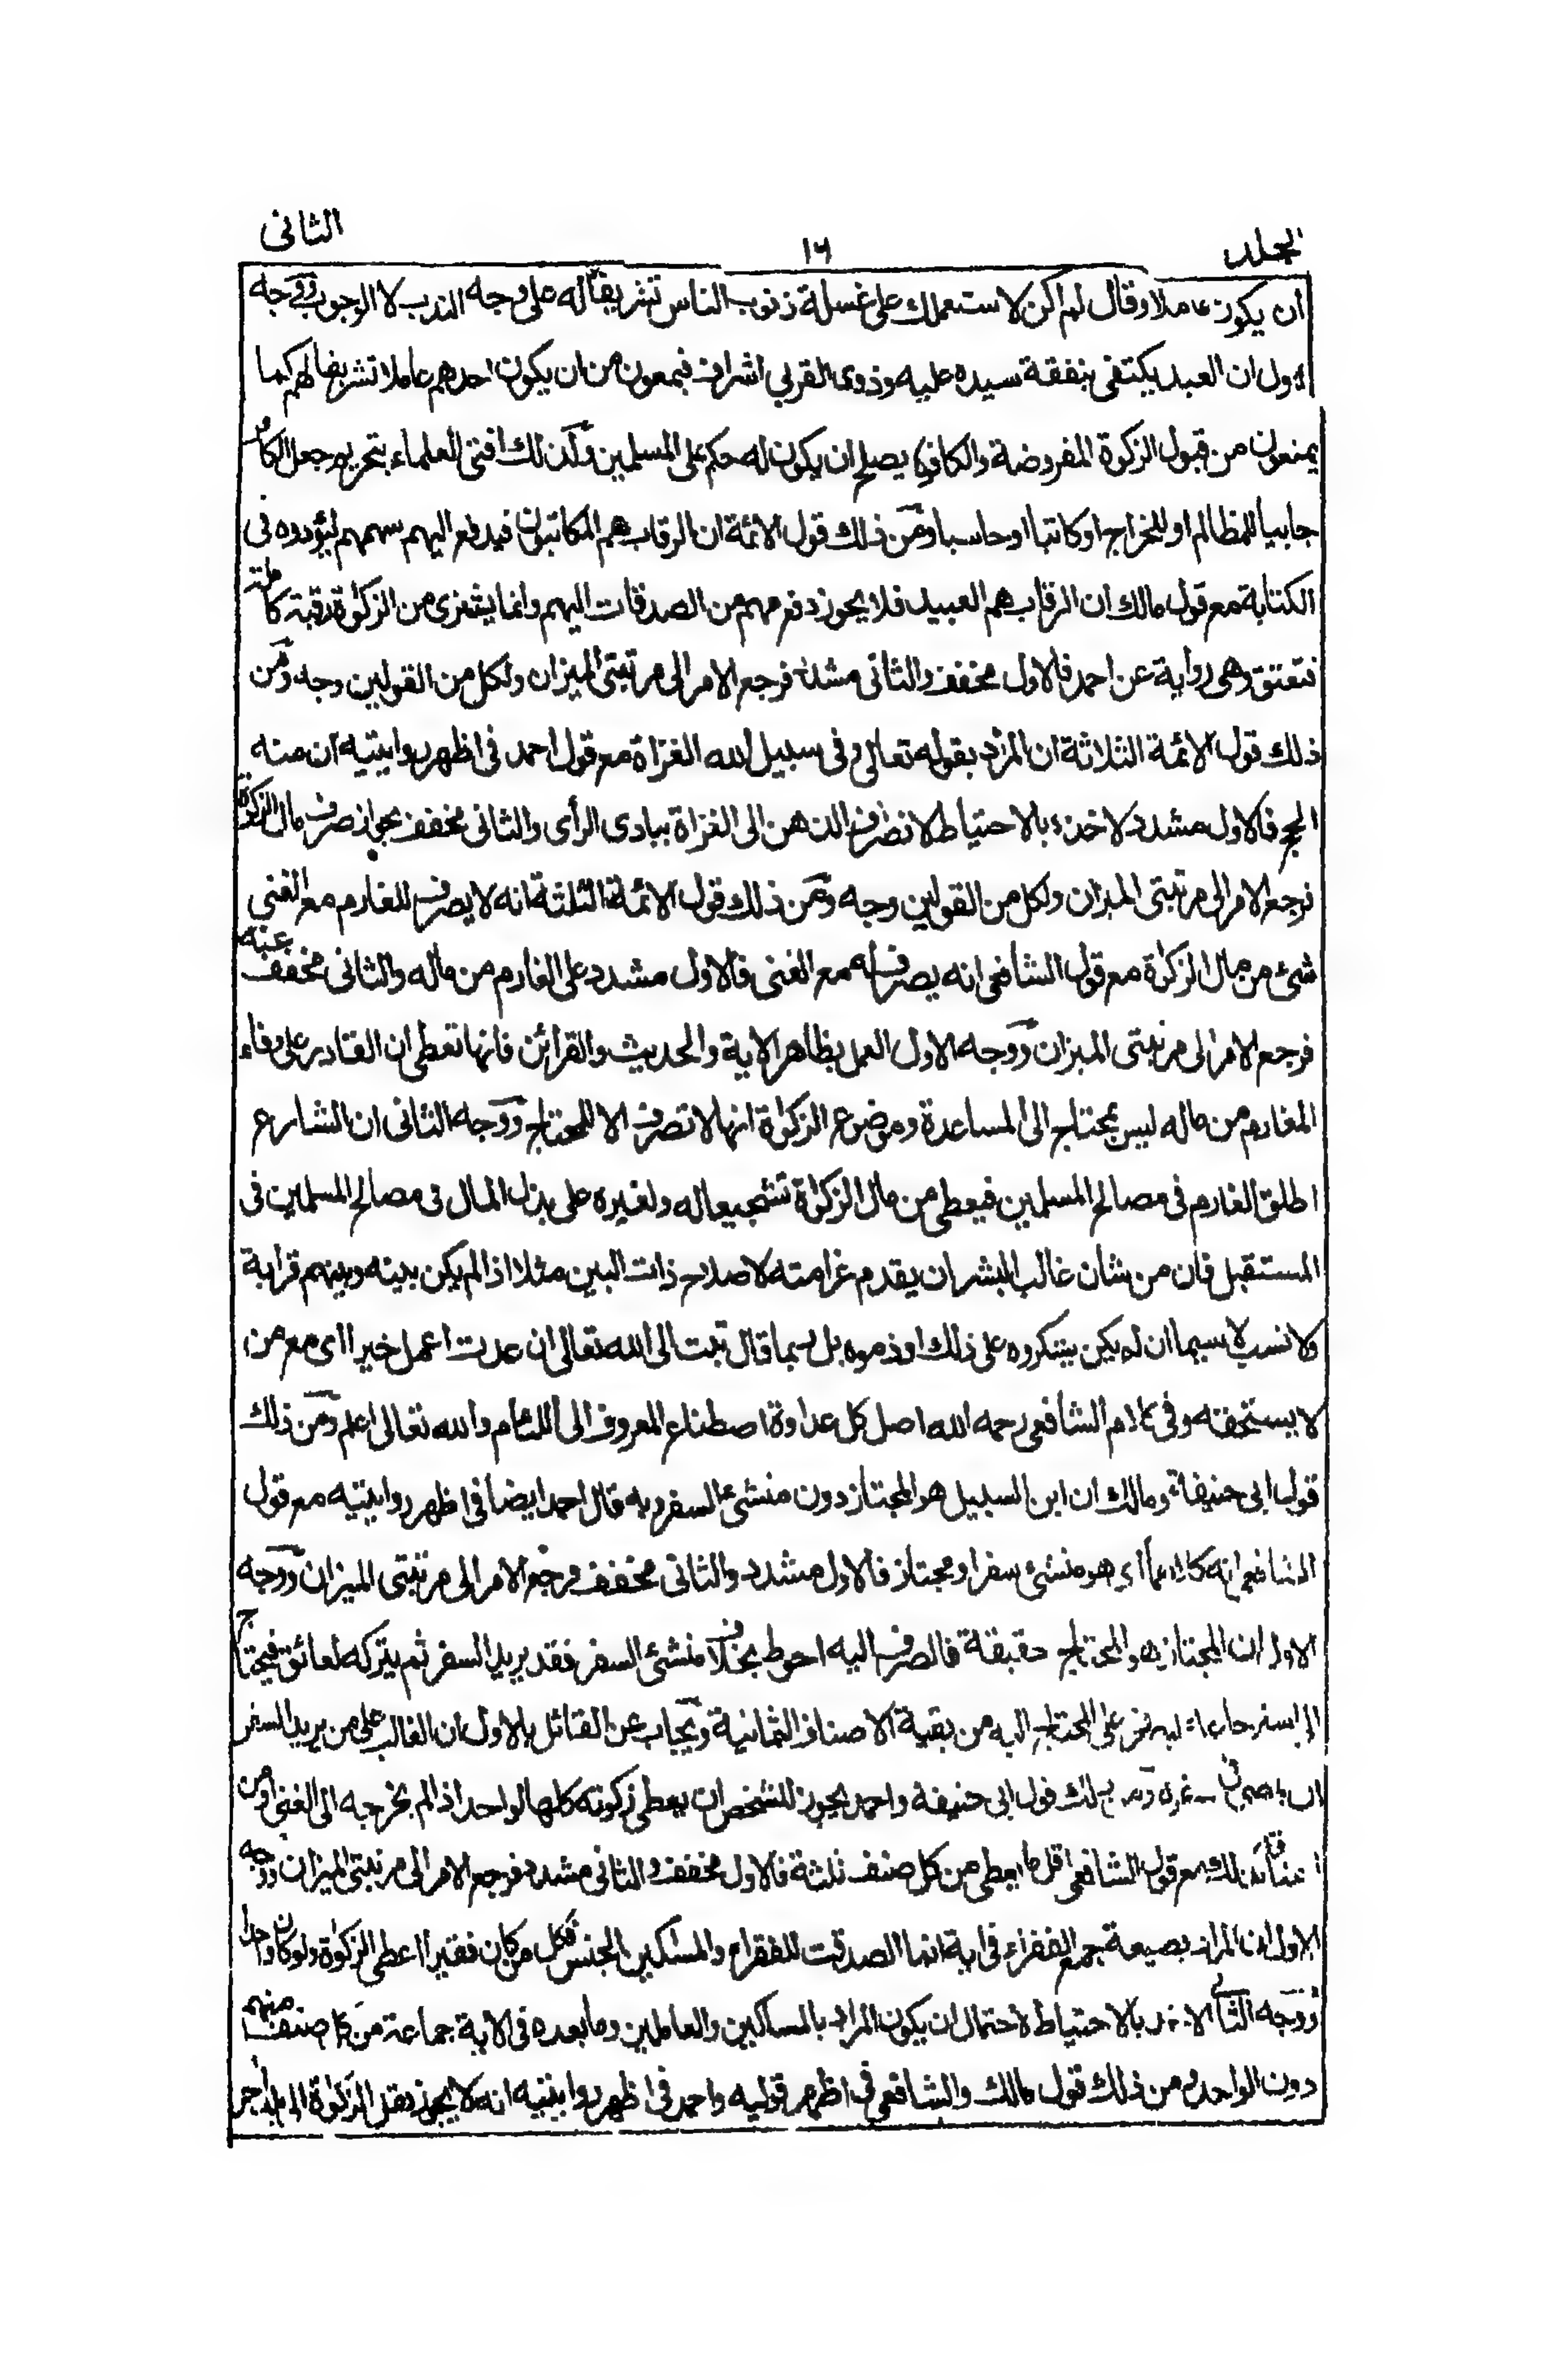 المجلد ١٦ الثانى
أن يكون عاملا وقال لم اكن لاستعملك على غسلة ذنوب الناس تشريفا له على وجه الندب لا الوجوب ووجه
الاول ان العبد يكتفى بنفقة سيده عليه وذوى القربى اشراف فيمعون من ان يكون احدهم عاملا تشريفا لهم كما
يمنعون من قبول الزكوة المفروضة والكافر لا يصلح ان يكون له حكم على المسلمين ولذلك افتى العلماء بتحريم جعل الكافر
جابيا للمظالم او للخراج او كاتبا او حاسبا ومن ذلك قول الائمة ان الرقاب هم المكاتبون فيدفع اليهم سهمهم ليؤدوه فى
الكتابة مع قول مالك ان الرقاب هم العبيد فلا يجوز دفع سهم من الصدقات اليهم وانما يشترى من الزكوة رقبة كاملة
فتعتق وهى رواية عن احمد فالاول مخفف والثانى مشدد فرجع الامر الى مرتبتى الميزان ولكل من القولين وجه ومن
ذلك قول الائمة الثلاثة ان المراد بقوله تعالى وفى سبيل الله الغزاة مع قول احمد فى اظهر روايتيه ان منه
الحج فالاول مشدد لاخذه بالاحتياط لانصراف الذهن الى الغزاة ببادى الرأى والثانى مخفف بجواز صرف مال الزكوة
فرجع الامر الى مرتبتى الميزان ولكل من القولين وجه ومن ذلك قول الائمة الثلثة انه لا يصرف للغارم مع الغنى
شئ من مال الزكوة مع قول الشافعى انه يصرف له مع الغنى فالاول مشدد على الغارم من ماله والثانى مخفف عنه
فرجع الامر الى مرتبتى الميزان ووجه الاول العمل بظاهر الاية والحديث والقرائن فانها تعطى ان القادر على وفاء
المغارم من ماله ليس بمحتاج الى المساعدة وموضوع الزكوة انها لا تصرف الا للمحتاج ووجه الثانى ان الشارع
اطلق الغارم فى مصالح المسلمين فيعطى من مال الزكوة تشجيعا له ولغيره على بذل المال فى مصالح المسلمين فى
المستقبل فان من شان غالب البشر ان يقدم غرامته لاصلاح ذات البين مثلا اذا لم يكن بينه وبينهم قرابة
ولا نسب لا سيما ان لم يكن يشكروه على ذلك او ذموه بل ربما قال تبت الى الله تعالى ان عدت اعمل خيرا اى مع من
لا يستحقه وفى كلام الشافعى رحمه الله اصل كل عداوة اصطناع المعروف الى اللئام والله تعالى اعلم ومن ذلك
قول ابى حنيفة ومالك ان ابن السبيل هو المجتاز دون منشئ السفر وبه قال احمد ايضا فى اظهر روايتيه مع قول
الشافعى انه كلاهما اى هو منشئ سفر او مجتاز فالاول مشدد والثانى مخفف فرجع الامر الى مرتبتى الميزان ووجه
الاول ان المجتاز هو المحتاج حقيقة فالصرف اليه احوط بخلاف منشئ السفر فقد يريد السفر ثم يتركه لعائق فيحتاج
الى على المحتاج اليه من بقية الاصناف الثمانية ويجاب عن القائل بالاول ان الغالب على من يريد السفر
ان ذلك قول ابى حنيفة واحمد يجوز للشخص ان يعطى زكوته كلها لواحد اذا لم يخرجه الى الغنى ومن
مع قول الشافعى اقل ما يعطى من كل صنف ثلثة فالاول مخفف والثانى مشدد فرجع الامر الى مرتبتى الميزان ووجه
الاول ان المراد بصيغة جمع الفقراء فى اية انما الصدقت للفقراء والمساكين الجنس فكل من كان فقيرا اعطى الزكوة ولو كان واحدا
ووجه الثانى الاخذ بالاحتياط لاحتمال ان يكون المراد بالمساكين والعاملين وما بعده فى الاية جماعة من كل صنف منهم
دون الواحد ومن ذلك قول مالك والشافعى فى اظهر قوليه واحمد فى اظهر روايتيه انه لا يجوز نقل الزكوة الى بلد اخر